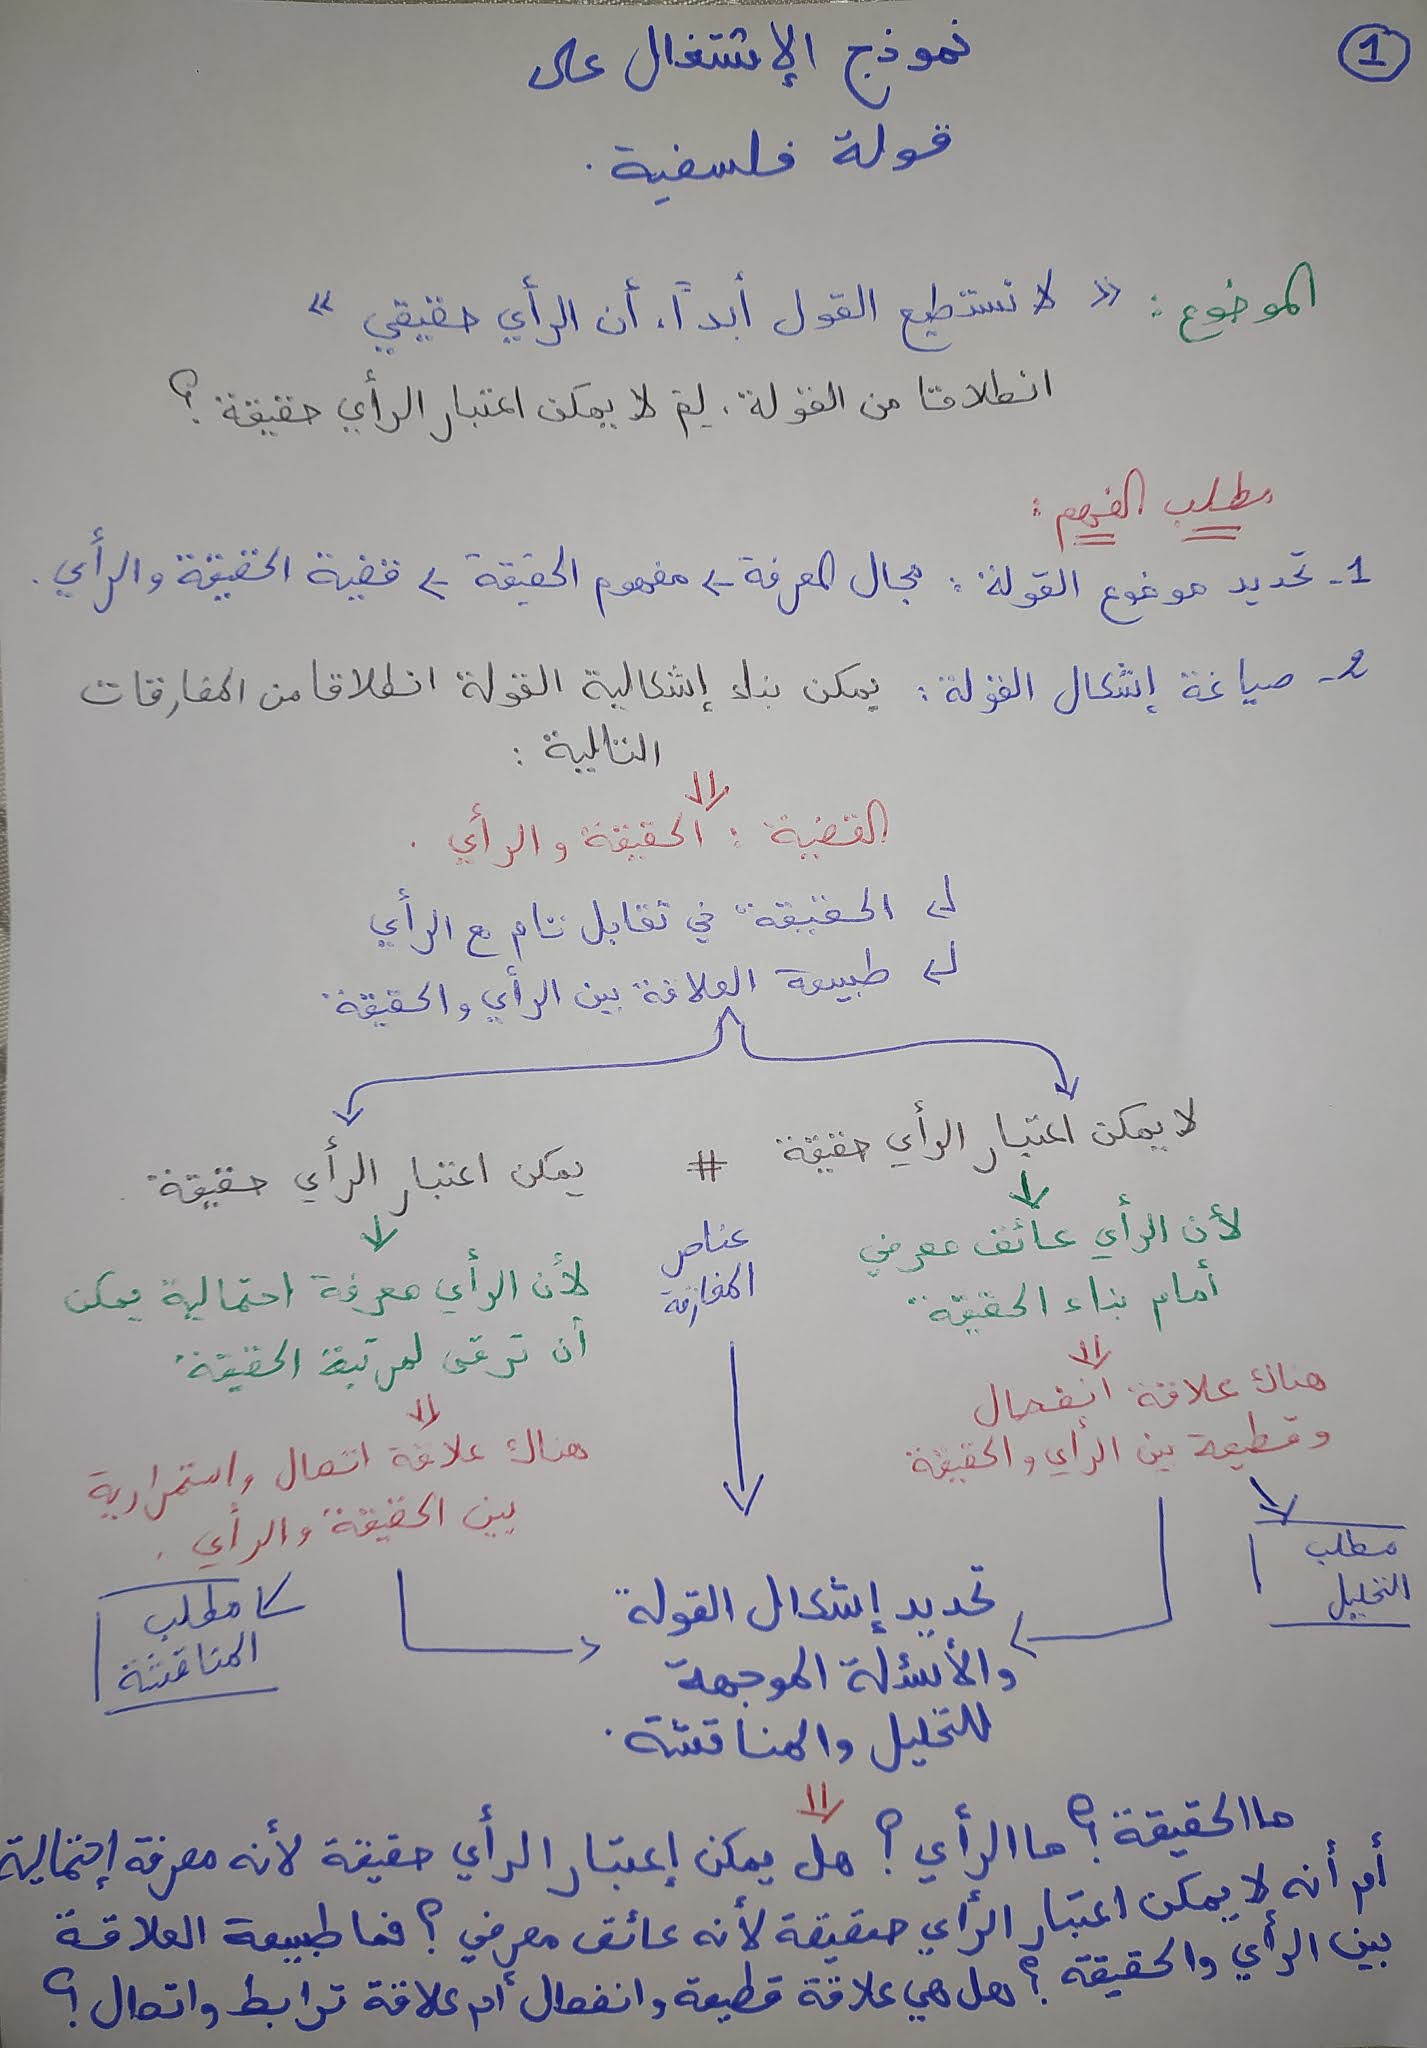 1
نموذج الإشتغال على
قولة فلسفية.
الموضوع: « لا نستطيع القول أبداً، أن الرأي حقيقي »
انطلاقا من القولة، لِمَ لا يمكن اعتبار الرأي حقيقة؟
مطلب الفهم:
1- تحديد موضوع القولة: مجال المعرفة > مفهوم الحقيقة > قضية الحقيقة والرأي.
2- صياغة إشكال القولة: يمكن بناء إشكالية القولة انطلاقا من المفارقات
التالية:
القضية: الحقيقة والرأي.
الحقيقة في تقابل تام مع الرأي
طبيعة العلاقة بين الرأي والحقيقة
لا يمكن اعتبار الرأي حقيقة # يمكن اعتبار الرأي حقيقة.
لأن الرأي عائق معرفي
أمام بناء الحقيقة
عناصر
المفارقة
لأن الرأي معرفة احتمالية يمكن
أن ترقى لمرتبة الحقيقة.
هناك علاقة انفصال
وقطيعة بين الرأي والحقيقة
هناك علاقة اتصال واستمرارية
بين الحقيقة والرأي.
مطلب
التحليل
مطلب
المناقشة
تحديد إشكال القولة
والأسئلة الموجهة
للتحليل والمناقشة.
ما الحقيقة؟ ما الرأي؟ هل يمكن إعتبار الرأي حقيقة لأنه معرفة إحتمالية
أم أنه لا يمكن اعتبار الرأي حقيقة لأنه عائق معرفي؟ فما طبيعة العلاقة
بين الرأي والحقيقة؟ هل هي علاقة قطيعة وانفصال أم علاقة ترابط واتصال؟